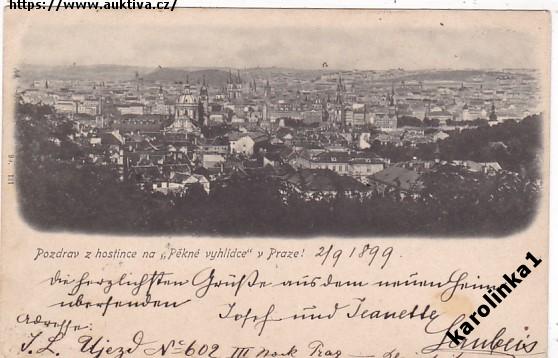 https://www.auktiva.cz/
Pozdrav z hostince na „Pěkné vyhlídce“ v Praze! 2/9 1899.
die herzlichsten Grüße aus dem neuen Heim
übersenden Josef und Jeanette
Adresse:
J. L. Ujezd No 602 III Prag
karolinka1